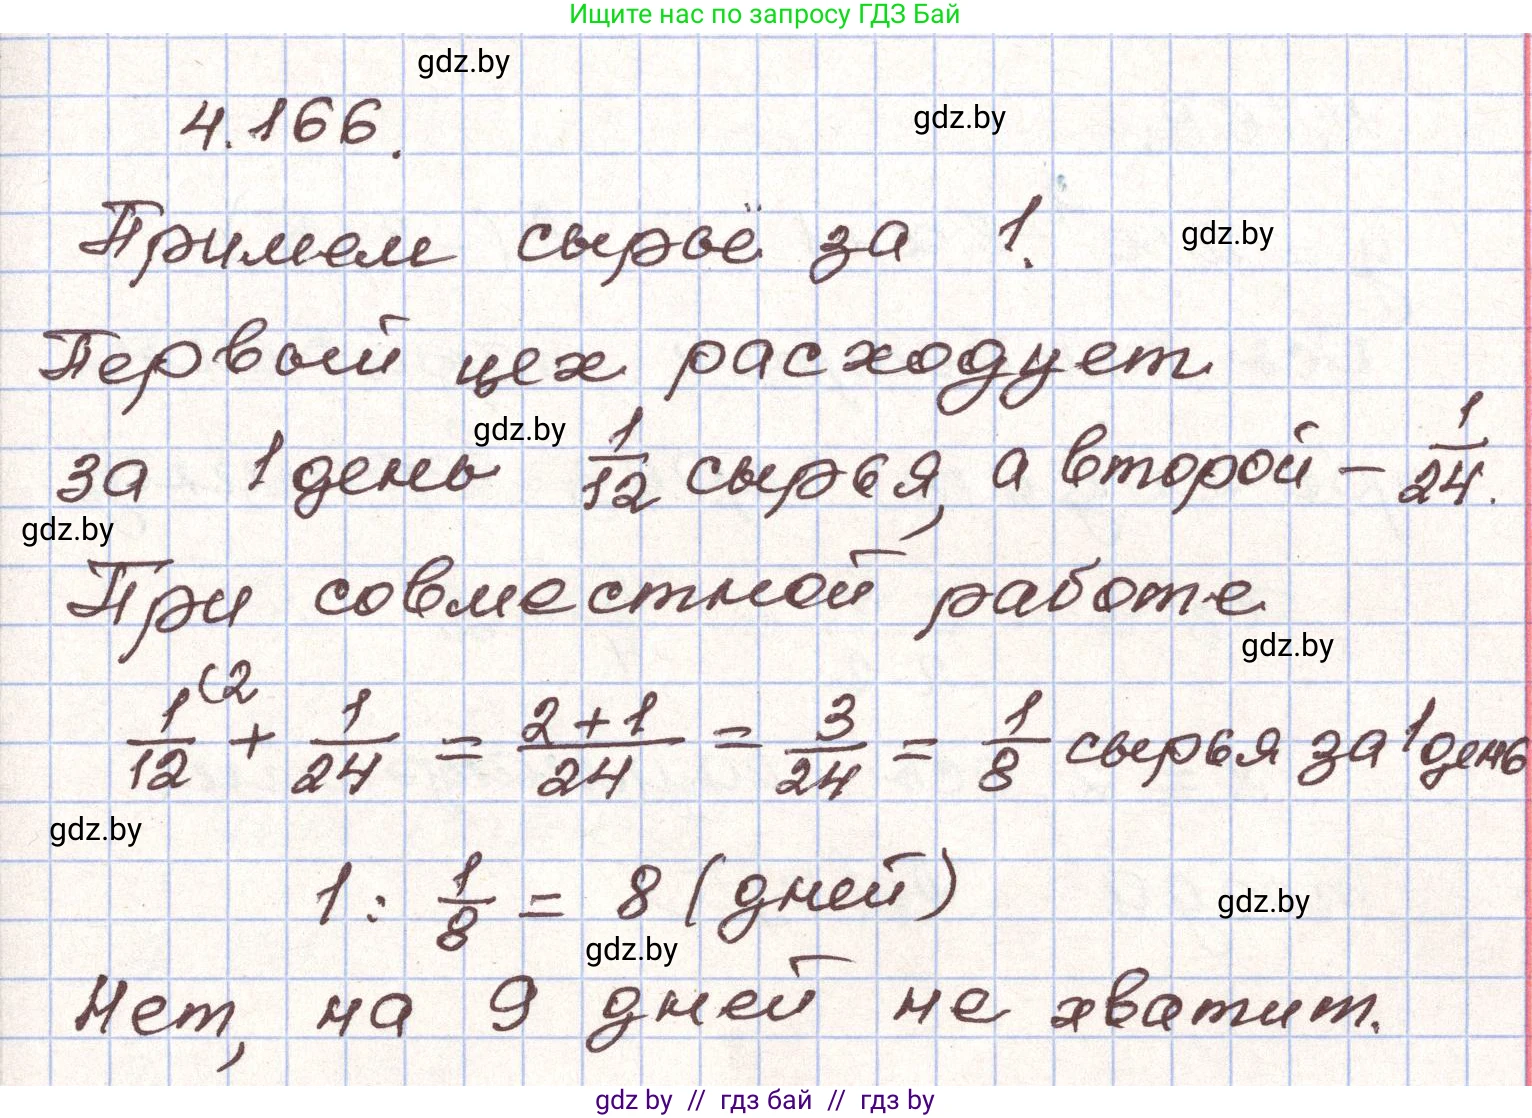 Ищите нас по запросу ГДЗ Бай
gdz.by
4.166.
gdz.by
Примем сырьё за 1.
gdz.by
Первый цех расходует
gdz.by
за 1 день 1/12 сырья, а второй – 1/24.
gdz.by
При совместной работе
gdz.by
1/12 (2 + 1/24 = 2+1/24 = 3/24 = 1/8 сырья за 1 день
gdz.by
1 : 1/8 = 8 (дней)
gdz.by
gdz.by
Нет, на 9 дней не хватит.
gdz by // гдз бай // гдз by